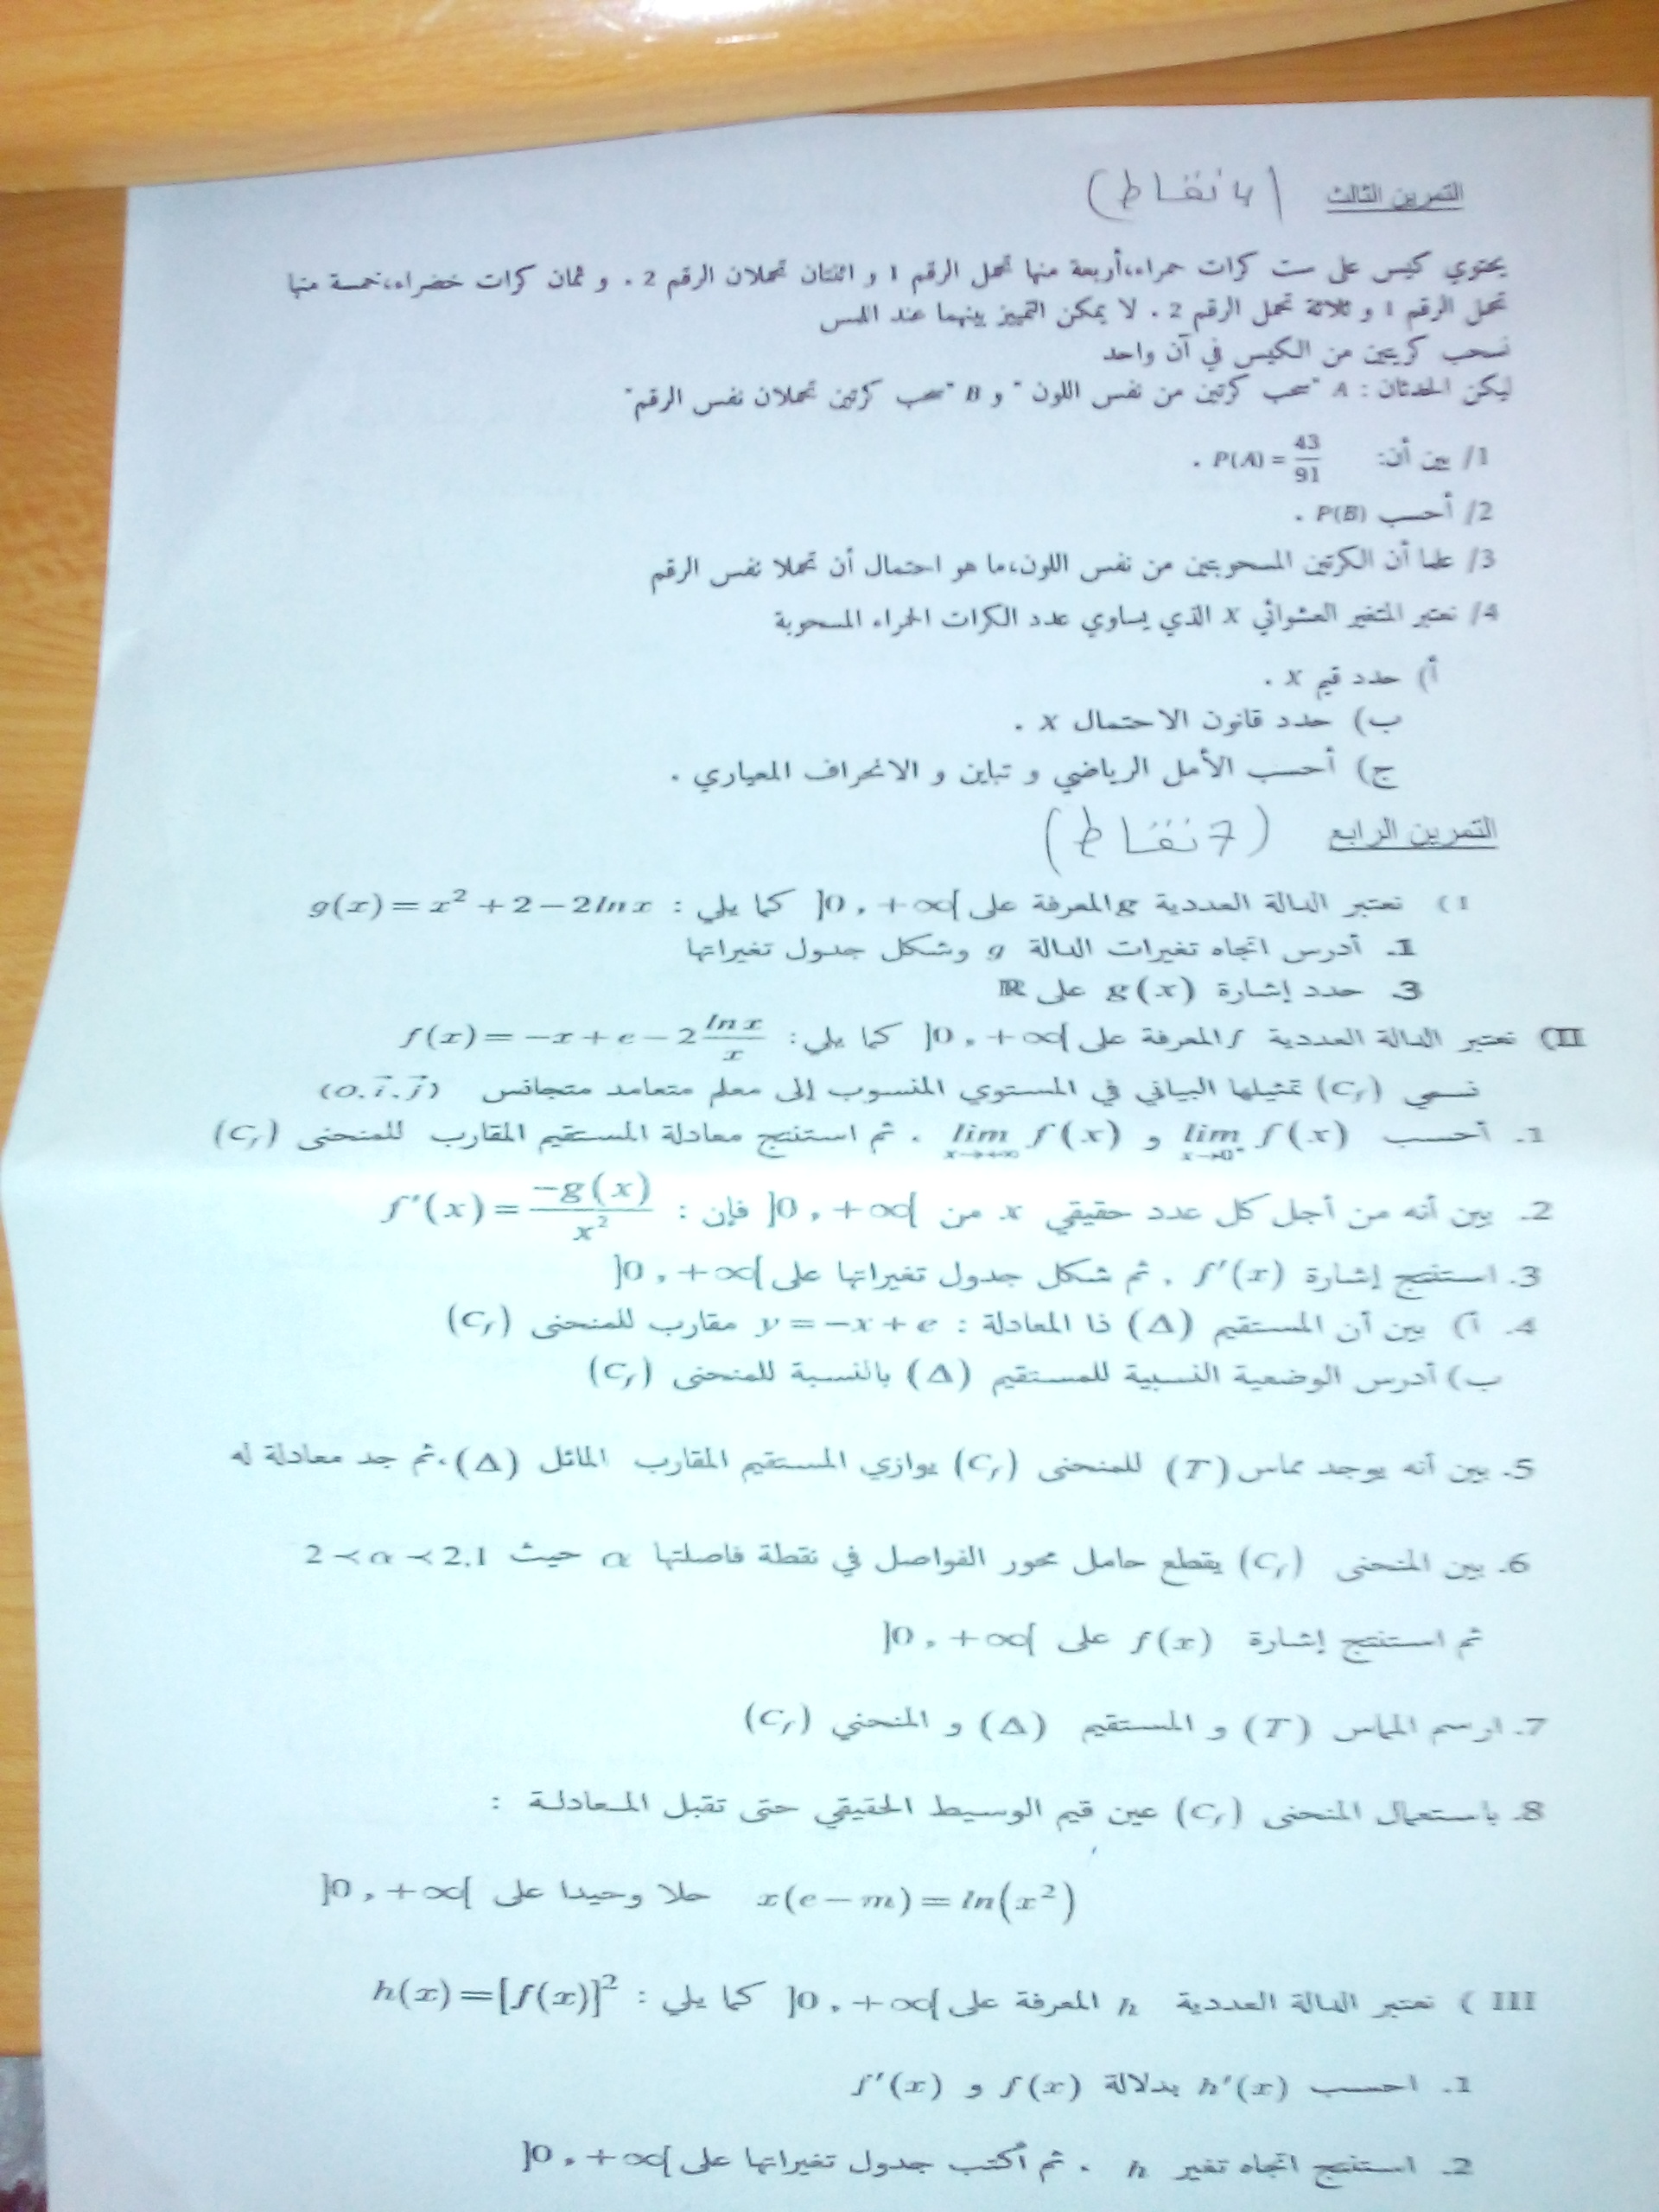 التمرين الثالث (4 نقاط)
يحتوي كيس على ست كرات حمراء،أربعة منها تحمل الرقم 1 و اثنتان تحملان الرقم 2 . و ثمان كرات خضراء،خمسة منها
تحمل الرقم 1 و ثلاثة تحمل الرقم 2 . لا يمكن التمييز بينهما عند اللمس
نسحب كريتين من الكيس في آن واحد
ليكن الحدثان : A "سحب كرتين من نفس اللون " و B "سحب كرتين تحملان نفس الرقم"
1/ بين أن: P(A) = 43/91 .
2/ أحسب P(B) .
3/ علما أن الكرتين المسحوبتين من نفس اللون،ما هو احتمال أن تحملا نفس الرقم
4/ نعتبر المتغير العشوائي X الذي يساوي عدد الكرات الحمراء المسحوبة
أ) حدد قيم X .
ب) حدد قانون الاحتمال X .
ج) أحسب الأمل الرياضي و تباين و الانحراف المعياري .
التمرين الرابع (7 نقاط)
I) نعتبر الدالة العددية g المعرفة على ]0 , +∞[ كما يلي : g(x) = x² + 2 − 2ln x
1. أدرس اتجاه تغيرات الدالة g وشكل جدول تغيراتها
3. حدد إشارة g(x) على ℝ
II) نعتبر الدالة العددية f المعرفة على ]0 , +∞[ كما يلي: f(x) = −x + e − 2 ln x/x
نسمي (C_f) تمثيلها البياني في المستوي المنسوب إلى معلم متعامد متجانس (O, i⃗, j⃗)
1. أحسب lim_{x→0⁺} f(x) و lim_{x→+∞} f(x) . ثم استنتج معادلة المستقيم المقارب للمنحنى (C_f)
2. بين أنه من أجل كل عدد حقيقي x من ]0 , +∞[ فإن : f′(x) = −g(x)/x²
3. استنتج إشارة f′(x) . ثم شكل جدول تغيراتها على ]0 , +∞[
4. أ) بين أن المستقيم (Δ) ذا المعادلة : y = −x + e مقارب للمنحنى (C_f)
ب) أدرس الوضعية النسبية للمستقيم (Δ) بالنسبة للمنحنى (C_f)
5. بين أنه يوجد مماس (T) للمنحنى (C_f) يوازي المستقيم المقارب المائل (Δ)،ثم جد معادلة له
6. بين المنحنى (C_f) يقطع حامل محور الفواصل في نقطة فاصلتها α حيث 2 ≺ α ≺ 2.1
ثم استنتج إشارة f(x) على ]0 , +∞[
7. ارسم المماس (T) و المستقيم (Δ) و المنحني (C_f)
8. باستعمال المنحنى (C_f) عين قيم الوسيط الحقيقي حتى تقبل المعادلة :
x(e − m) = ln(x²) حلا وحيدا على ]0 , +∞[
III ) نعتبر الدالة العددية h المعرفة على ]0 , +∞[ كما يلي : h(x) = [f(x)]²
1. احسب h′(x) بدلالة f(x) و f′(x)
2. استنتج اتجاه تغير h . ثم أكتب جدول تغيراتها على ]0 , +∞[